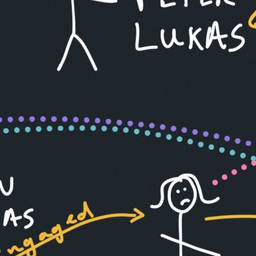 PETER
LUKAS
U
AS
engaged